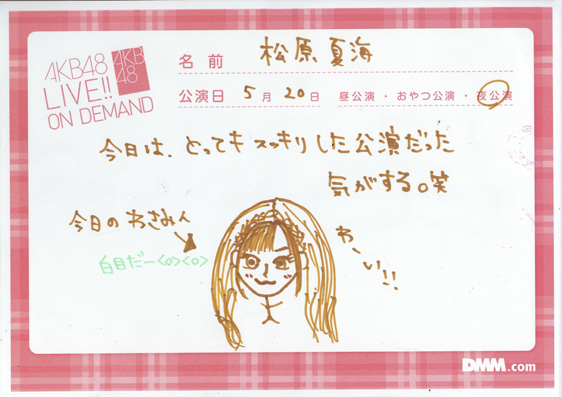 AKB48
LIVE!!
ON DEMAND
AKB
48
名前 松原夏海
公演日 5月20日 昼公演・おやつ公演・夜公演
今日は、とってもスッキリした公演だった
気がする。笑
今日のわさみん
白目だー<o><o>
わーい!!
DMM.com